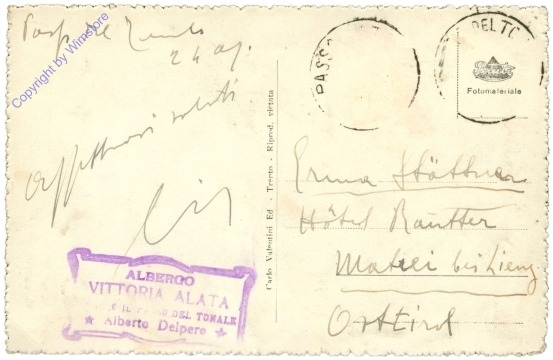 Copyright by Wimstore
Passo del Tonale
24 ag.
Affettuosi saluti
ALBERGO
VITTORIA ALATA
IL PASSO DEL TONALE
★ Alberto Delpero ★
Carlo Valentini Ed - Trento - Riprod. vietata
PASS
DEL TO
Fotomateriale
Erna Stöttner
Hôtel Rautter
Matrei bei Lienz
Osttirol